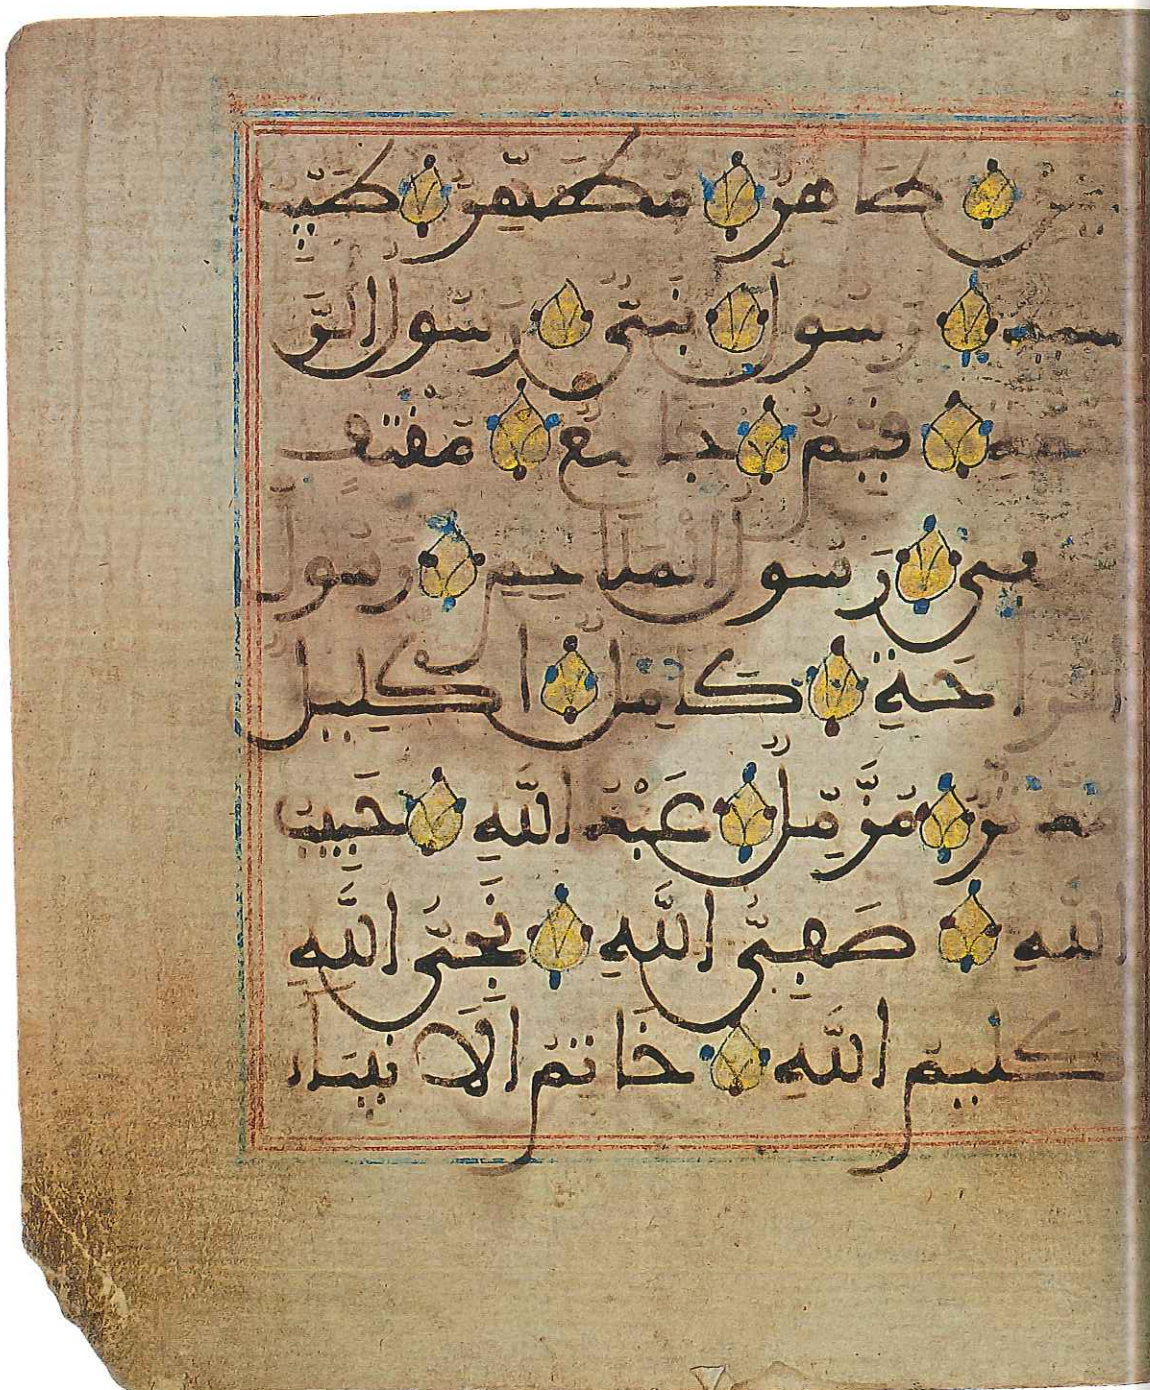 طاهر مطهر طيب
سيد رسول نبي رسول الر
حمة قيم جامع مقتف
رسول الملاحم رسول
الراحة كامل اكليل
مدثر مزمل عبد الله حبيب
الله صفي الله نجي الله
كليم الله خاتم الانبياء